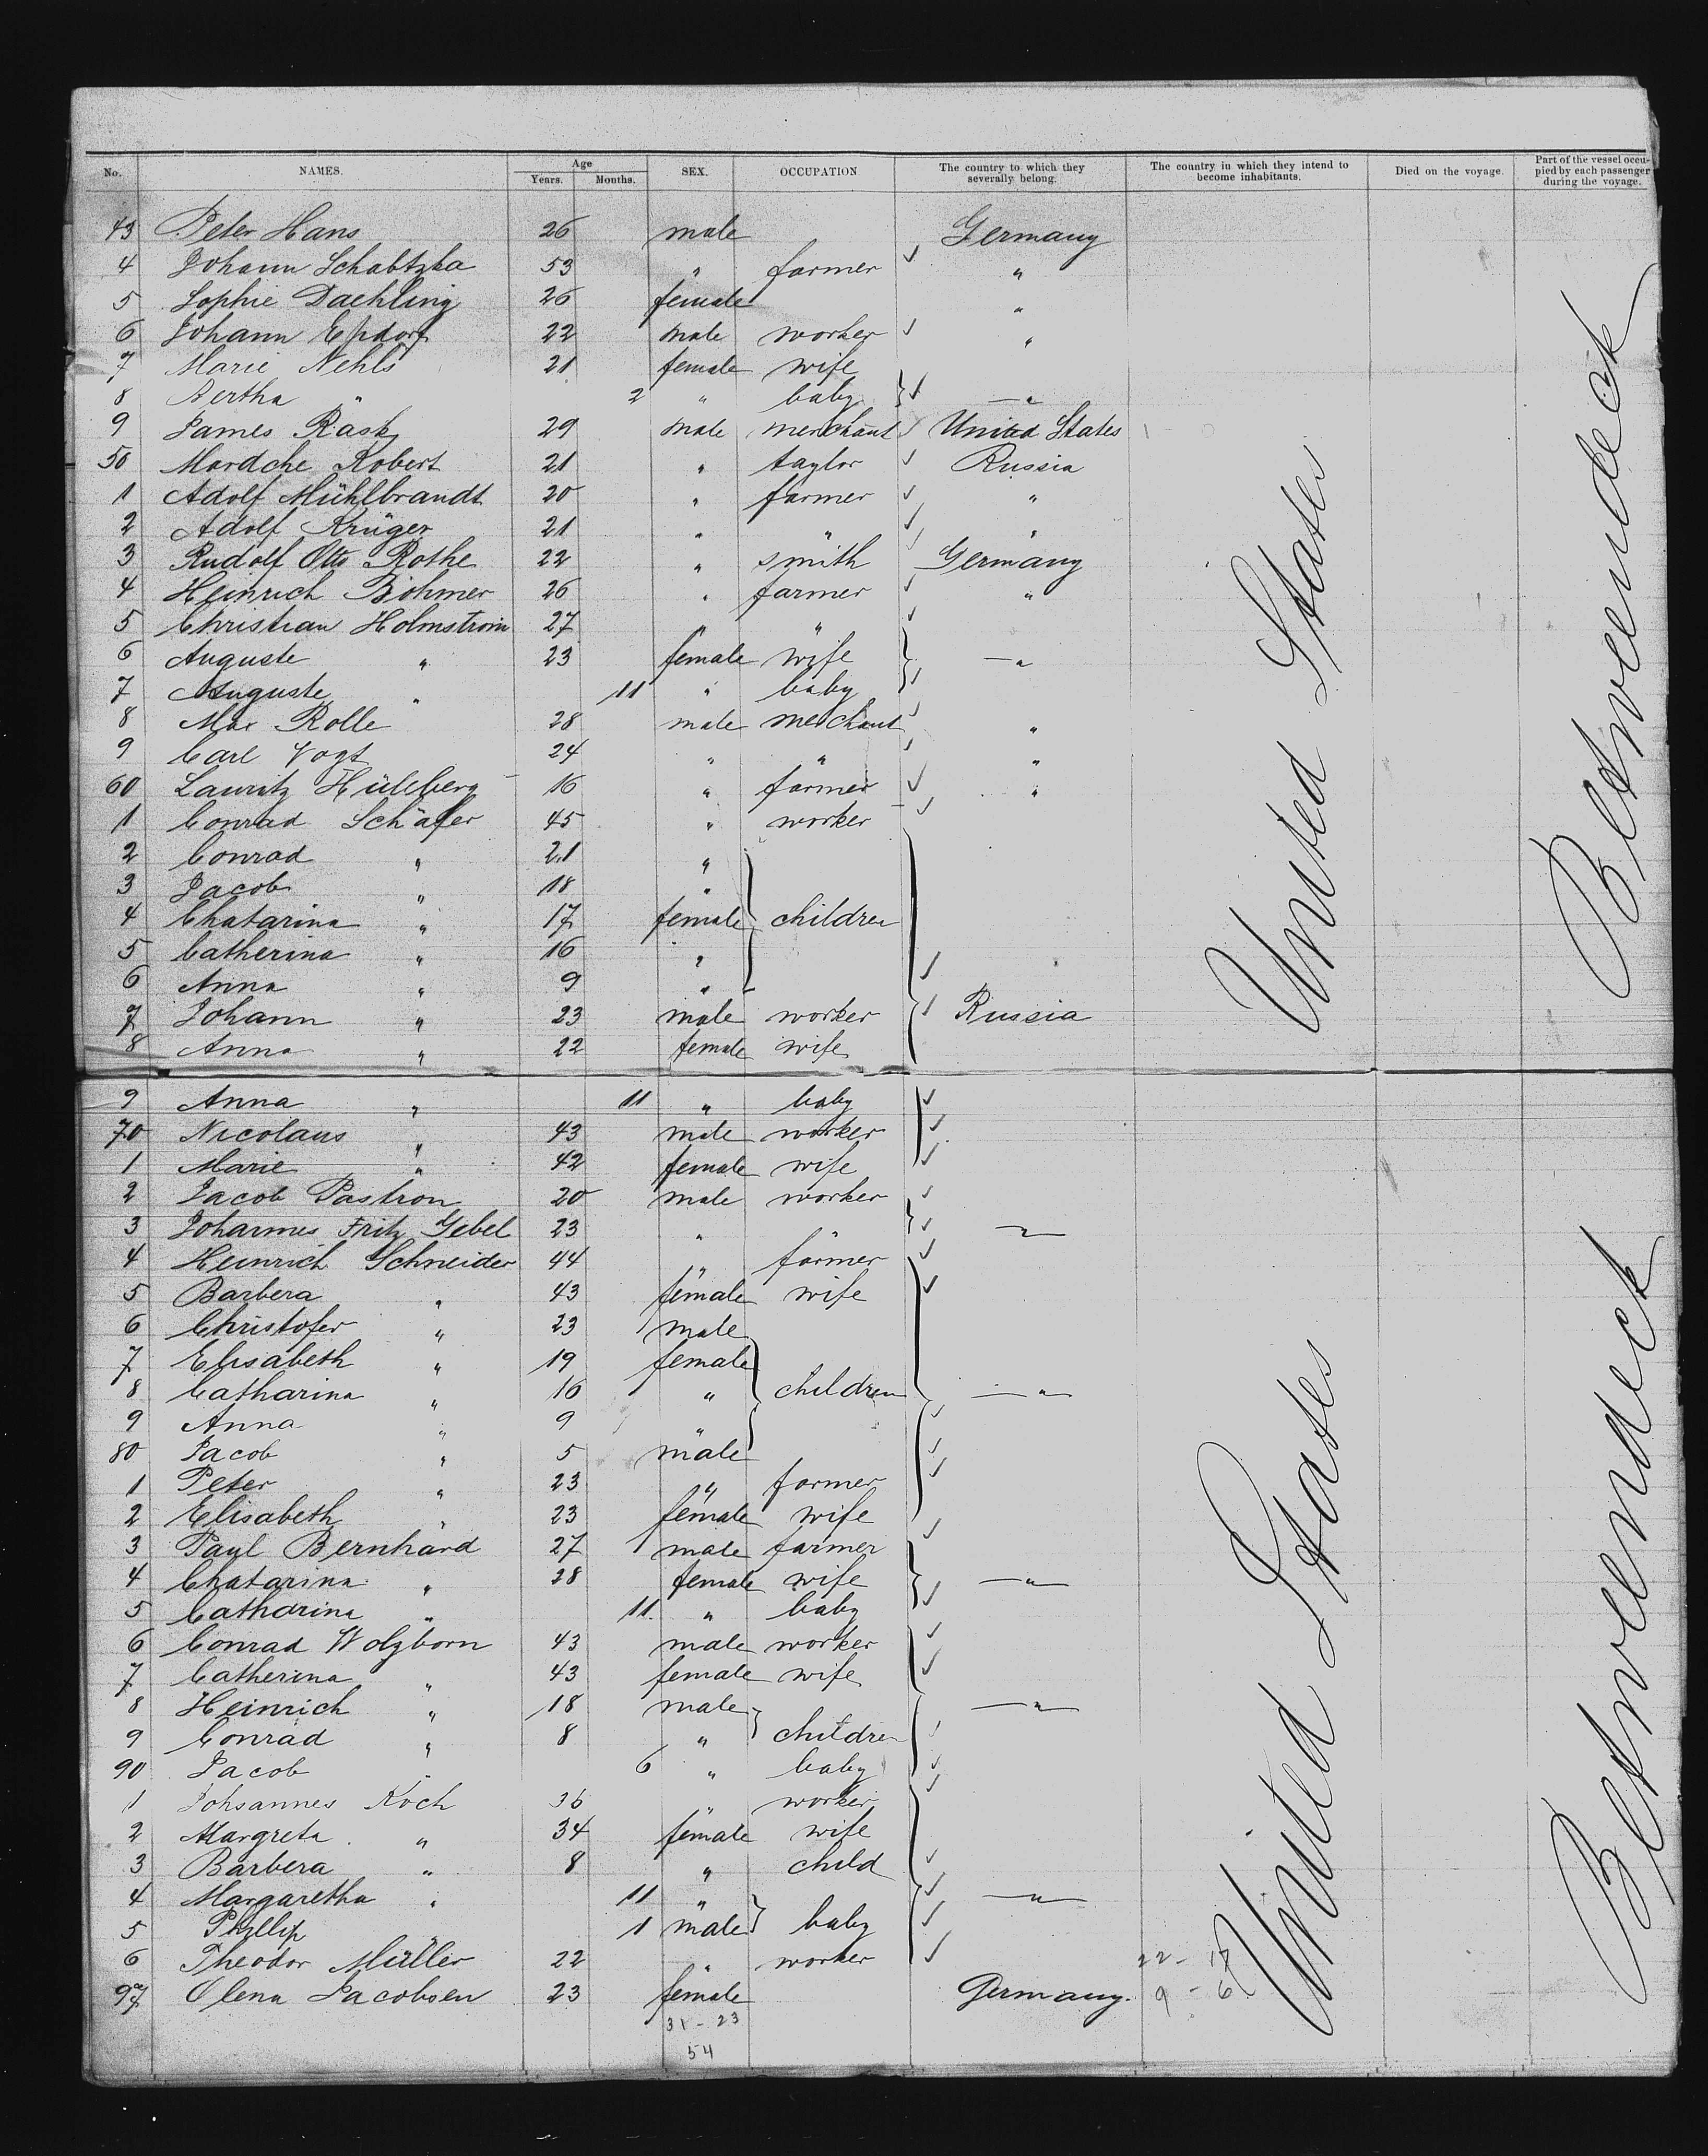 No. NAMES. Age Years. Months. SEX. OCCUPATION The country to which they severally belong. The country in which they intend to become inhabitants. Died on the voyage. Part of the vessel occupied by each passenger during the voyage.
43 Peter Hans 26 male Germany
4 Johann Schabtzka 53 " farmer "
5 Sophie Daehling 26 female "
6 Johann Epdorf 22 male worker "
7 Marie Nehls 21 female wife
8 Bertha " 2 " baby — " —
9 James Rask 29 male merchant United States
50 Mordche Robert 21 " taylor Russia
1 Adolf Mühlbrandt 20 " farmer "
2 Adolf Krüger 21 " " "
3 Rudolf Otto Rothe 22 " smith Germany
4 Heinrich Böhmer 26 " farmer "
5 Christian Holmstrom 27 " "
6 Auguste " 23 female wife — " —
7 Auguste " 11 " baby
8 Max Rolle 28 male merchant "
9 Carl Vogt 24 " " "
60 Lauritz Hüleberg 16 " farmer "
1 Conrad Schäfer 45 " worker
2 Conrad " 21 "
3 Jacob " 18 "
4 Chatarina " 17 female children
5 Catherina " 16 "
6 Anna " 9 "
7 Johann " 23 male worker Russia
8 Anna " 22 female wife
9 Anna " 11 " baby
70 Nicolaus " 43 male worker
1 Marie " 42 female wife
2 Jacob Pastron 20 male worker
3 Johannes Fritz Gebel 23 " — " —
4 Heinrich Schneider 44 " farmer
5 Barbera " 43 female wife
6 Christofer " 23 male
7 Elisabeth " 19 female
8 Catharina " 16 " children — " —
9 Anna " 9 "
80 Jacob " 5 male
1 Peter " 23 " farmer
2 Elisabeth " 23 female wife
3 Paul Bernhard 27 male farmer
4 Chatarina " 28 female wife — " —
5 Cathdrina " 11 " baby
6 Conrad Wolzborn 43 male worker
7 Catherina " 43 female wife
8 Heinrich " 18 male — " —
9 Conrad " 8 " children
90 Jacob " 6 " baby
1 Johsannes Koch 36 " worker
2 Margreta " 34 female wife
3 Barbera " 8 " child
4 Margaretha " 11 " — " —
5 Phillip " 1 male baby
6 Theodor Müller 22 " worker 22 - 17
97 Olena Jacobsen 23 female Germany. 9 - 6
31 - 23
54
United States
Betweendeck
United States
Betweendeck